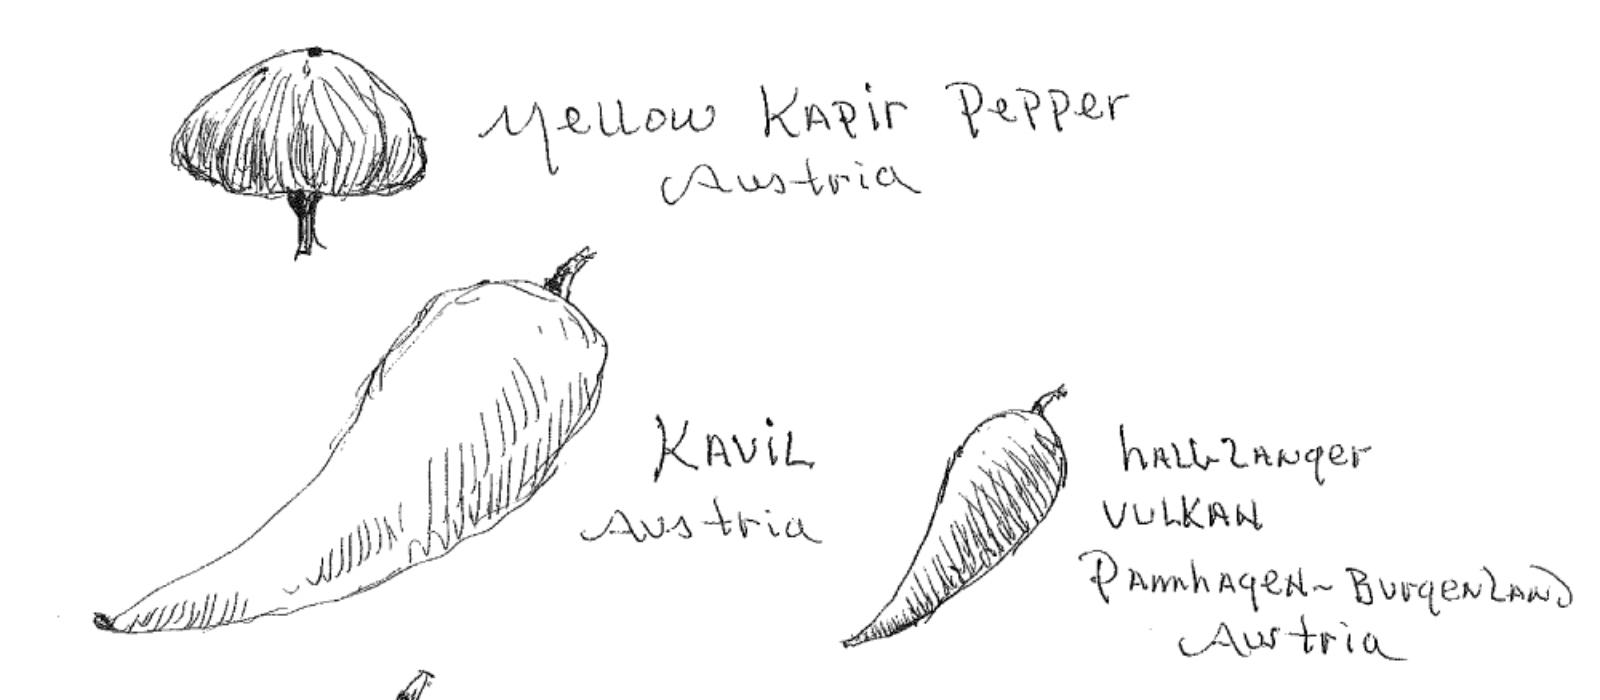 Yellow Kapir Pepper
Austria
KAVIL
Austria
hALbzANger
VULKAN
PAmhagen- BurgenLAND
Austria